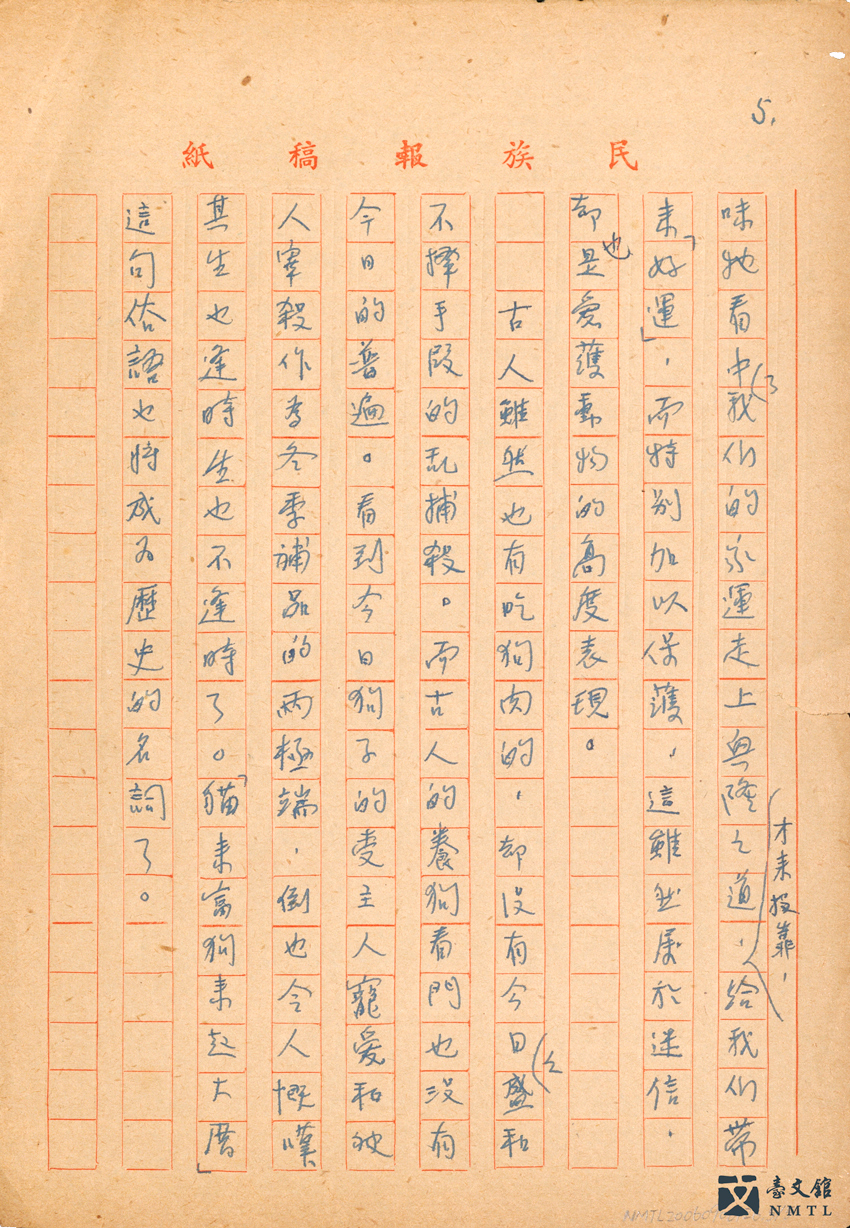 5.
民族報稿紙
味牠看中了我们的家運走上興隆之道,才来投靠,以給我们帶
来「好運」,而特別加以保護,這雖然屬於迷信,
却也是愛護動物的高度表現。
古人雖然也有吃狗肉的,却没有今日之盛和
不擇手段的乱捕殺。而古人的養狗看門也没有
今日的普遍。看到今日狗子的受主人寵愛和被
人宰殺作为冬季補品的兩極端,倒也令人慨嘆
其生也逢時生也不逢時了。「貓来富狗来起大厝」
這句俗語也將成为歷史的名詞了。
臺文館
NMTL